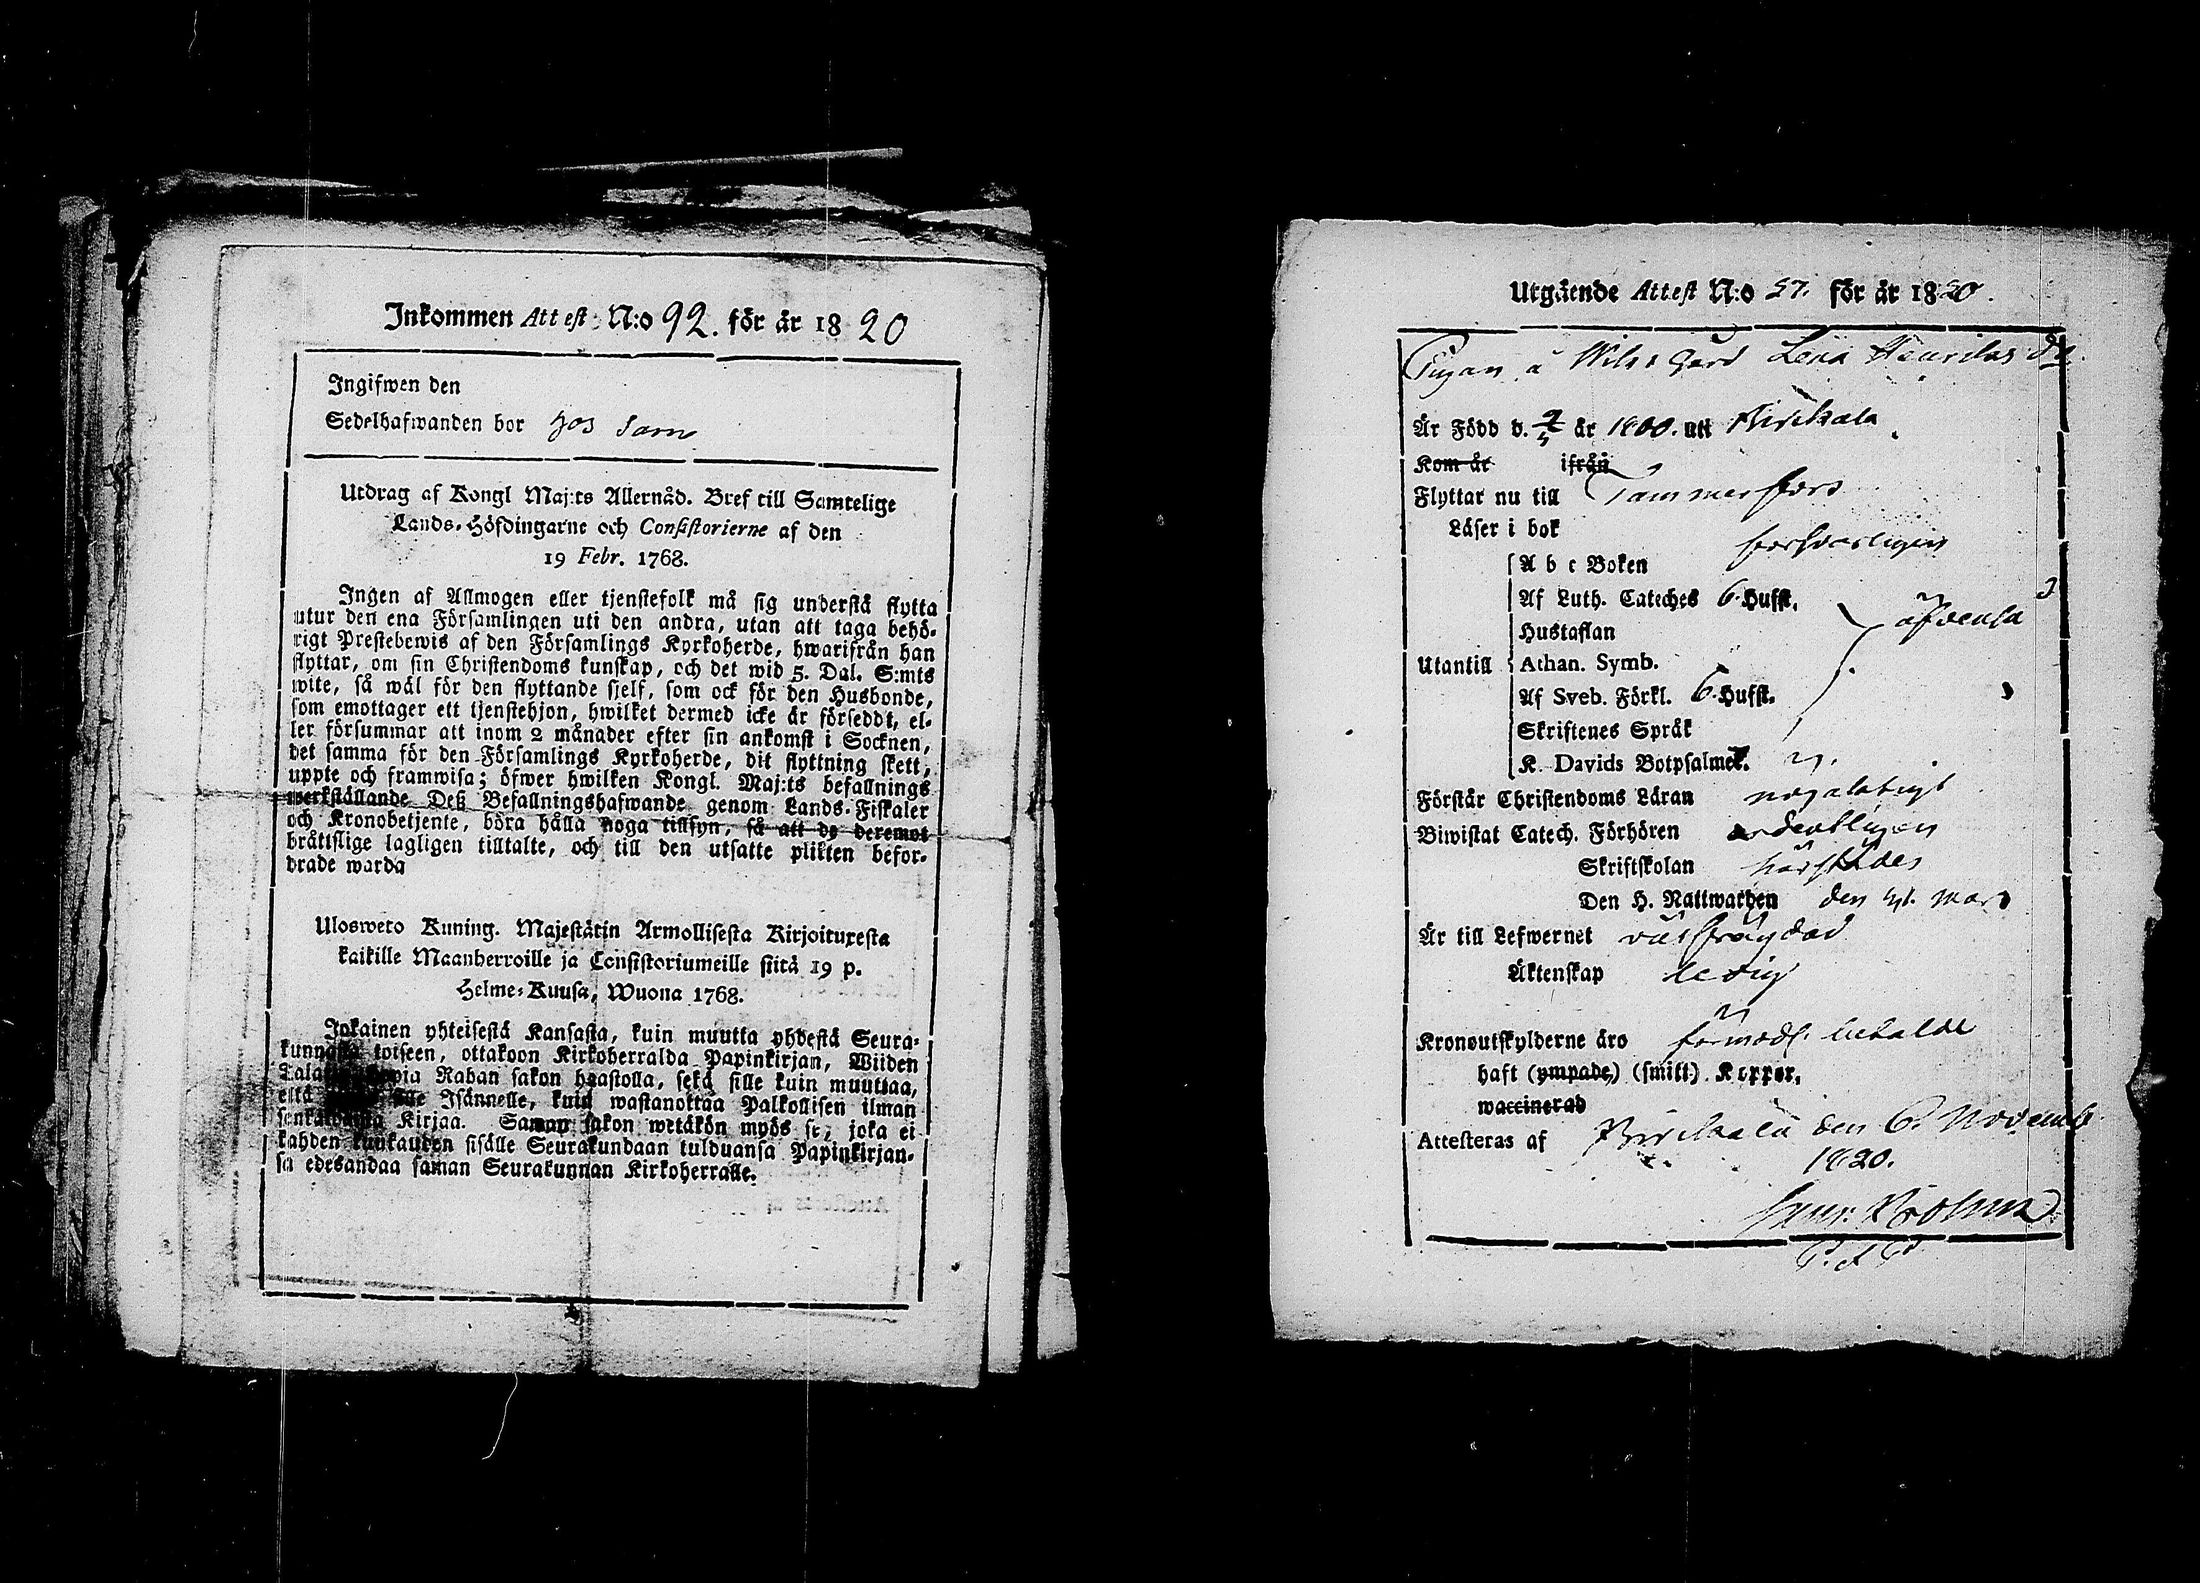 Inkommen Attest N:o 92. för år 1820
Ingifwen den
Sedelhafwanden bor hos
Utdrag af Kongl Maj:ts Allernåd. Bref till Samtelige
Lands-Höfdingarne och Consistorierne af den
19 Febr. 1768.
Ingen af Allmogen eller tjenstefolk må sig understå flytta
utur den ena Församlingen uti den andra, utan att taga behö-
rigt Prestebewis af den Församlings Kyrkoherde, hwarifrån han
flyttar, om sin Christendoms kunskap, och det wid 5. Dal. S:mts
wite, så wäl för den flyttande sjelf, som ock för den Husbonde,
som emottager ett tjenstehjon, hwilket dermed icke är förseddt, el-
ler försummar att inom 2 månader efter sin ankomst i Socknen,
det samma för den Församlings Kyrkoherde, dit flyttning skett,
uppte och framwisa; öfwer hwilken Kongl. Maj:ts befallnings
werkställande Deß Befallningshafwande genom Lands-Fiskaler
och Kronobetjente, böra hålla noga tillsyn, så att de deremot
bråttslige lagligen tilltalte, och till den utsatte plikten befor-
drade warda
Ulosweto Kuning. Majestätin Armollisesta Kirjoituxesta
kaikille Maanherroille ja Consistoriumeille siitä 19 p.
Helme-Kuusa, Wuona 1768.
Jokainen yhteisestä Kansasta, kuin muutta yhdestä Seura-
kunnasta toiseen, ottakoon Kirkoherralda Papinkirjan, Wiiden
Rahan sakon haastolla, sekä sille kuin muuttaa,
että Isännelle, kuin wastanottaa Palkollisen ilman
Kirjaa. Saman sakon wetäkön myös se, joka ei
kahden kuukauden sisälle Seurakundaan tulduansa Papinkirjan-
sa edesandaa saman Seurakunnan Kirkoherralle.
Utgående Attest N:o 57. för år 1820.
Pigan å Wilo gård Lena Henriks dr.
Är Född d. 4/5 år 1800. uti Birkala
Kom år ifrån
Flyttar nu till Tammerfors
Läser i bok försvarligen
A b c Boken
Af Luth. Cateches 6. Hufst.
Hustaflan äfvenså
Utantill Athan. Symb.
Af Sveb. Förkl. 6. Hufst.
Skriftenes Språk
K. Davids Botpsalmer.
Förstår Christendoms Läran nöjaktigt
Biwistat Catech. Förhören ordentligen
Skriftskolan härstädes
Den H. Nattwarden den
Är till Lefwernet välfrägdad
Äktenskap ledig
Kronoutskylderne äro förmodl. betalde
haft (ympade) (smitt) Koppor.
waccinerad
Attesteras af Birkala den 6. Novemb
1820.